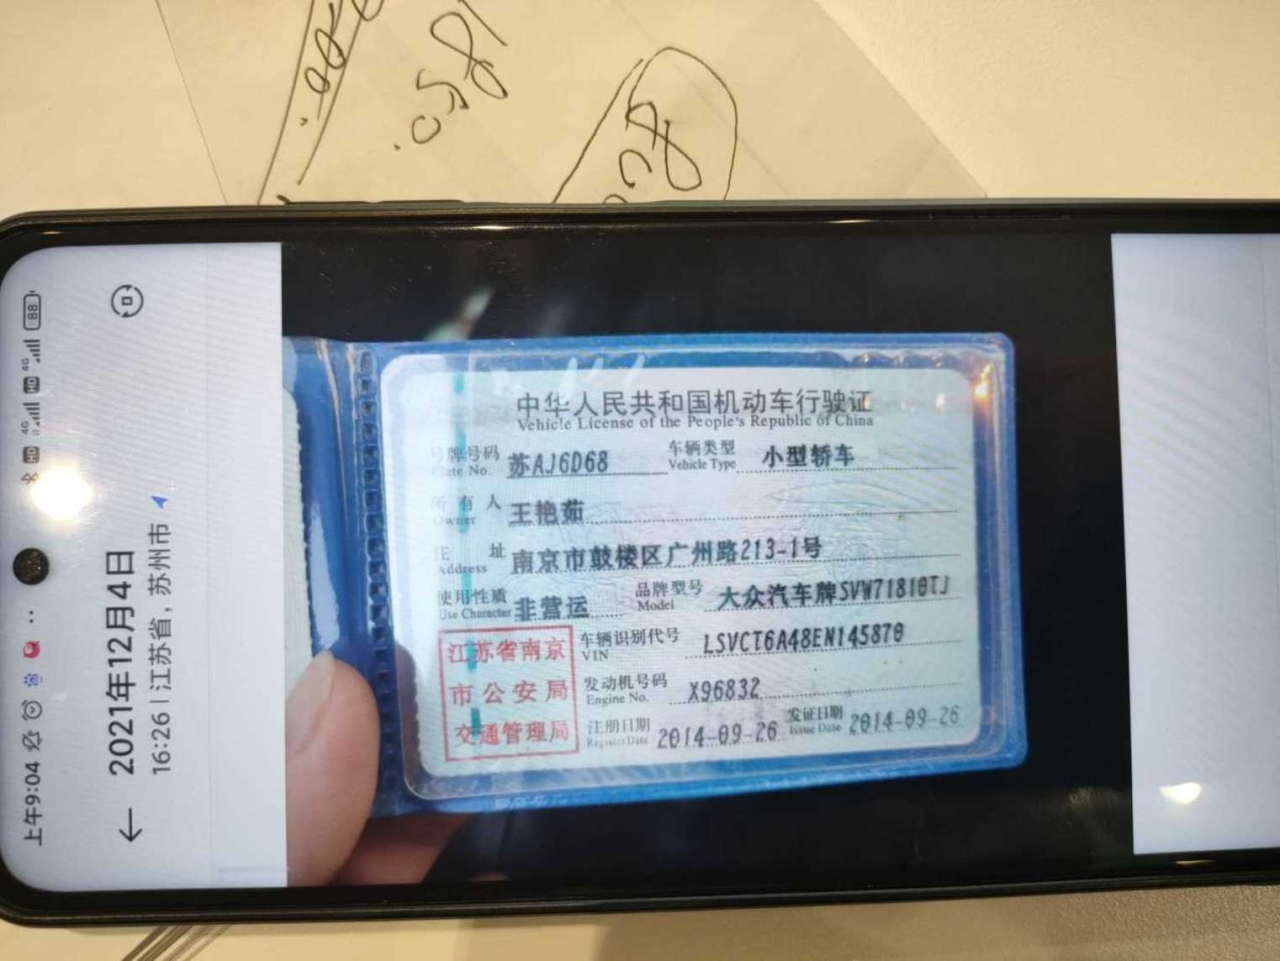 上午9:04
4G HD 4G HD 88
2021年12月4日
16:26 | 江苏省，苏州市
中华人民共和国机动车行驶证
Vehicle License of the People's Republic of China
号牌号码 苏AJ6D68 车辆类型 小型轿车
Plate No. Vehicle Type
所有人 王艳茹
Owner
住址 南京市鼓楼区广州路213-1号
Address
使用性质 非营运 品牌型号 大众汽车牌SVW71810TJ
Use Character Model
江苏省南京
市公安局
交通管理局
车辆识别代号 LSVCT6A48EN145870
VIN
发动机号码 X96832
Engine No.
注册日期 2014-09-26 发证日期 2014-09-26
Register Date Issue Date